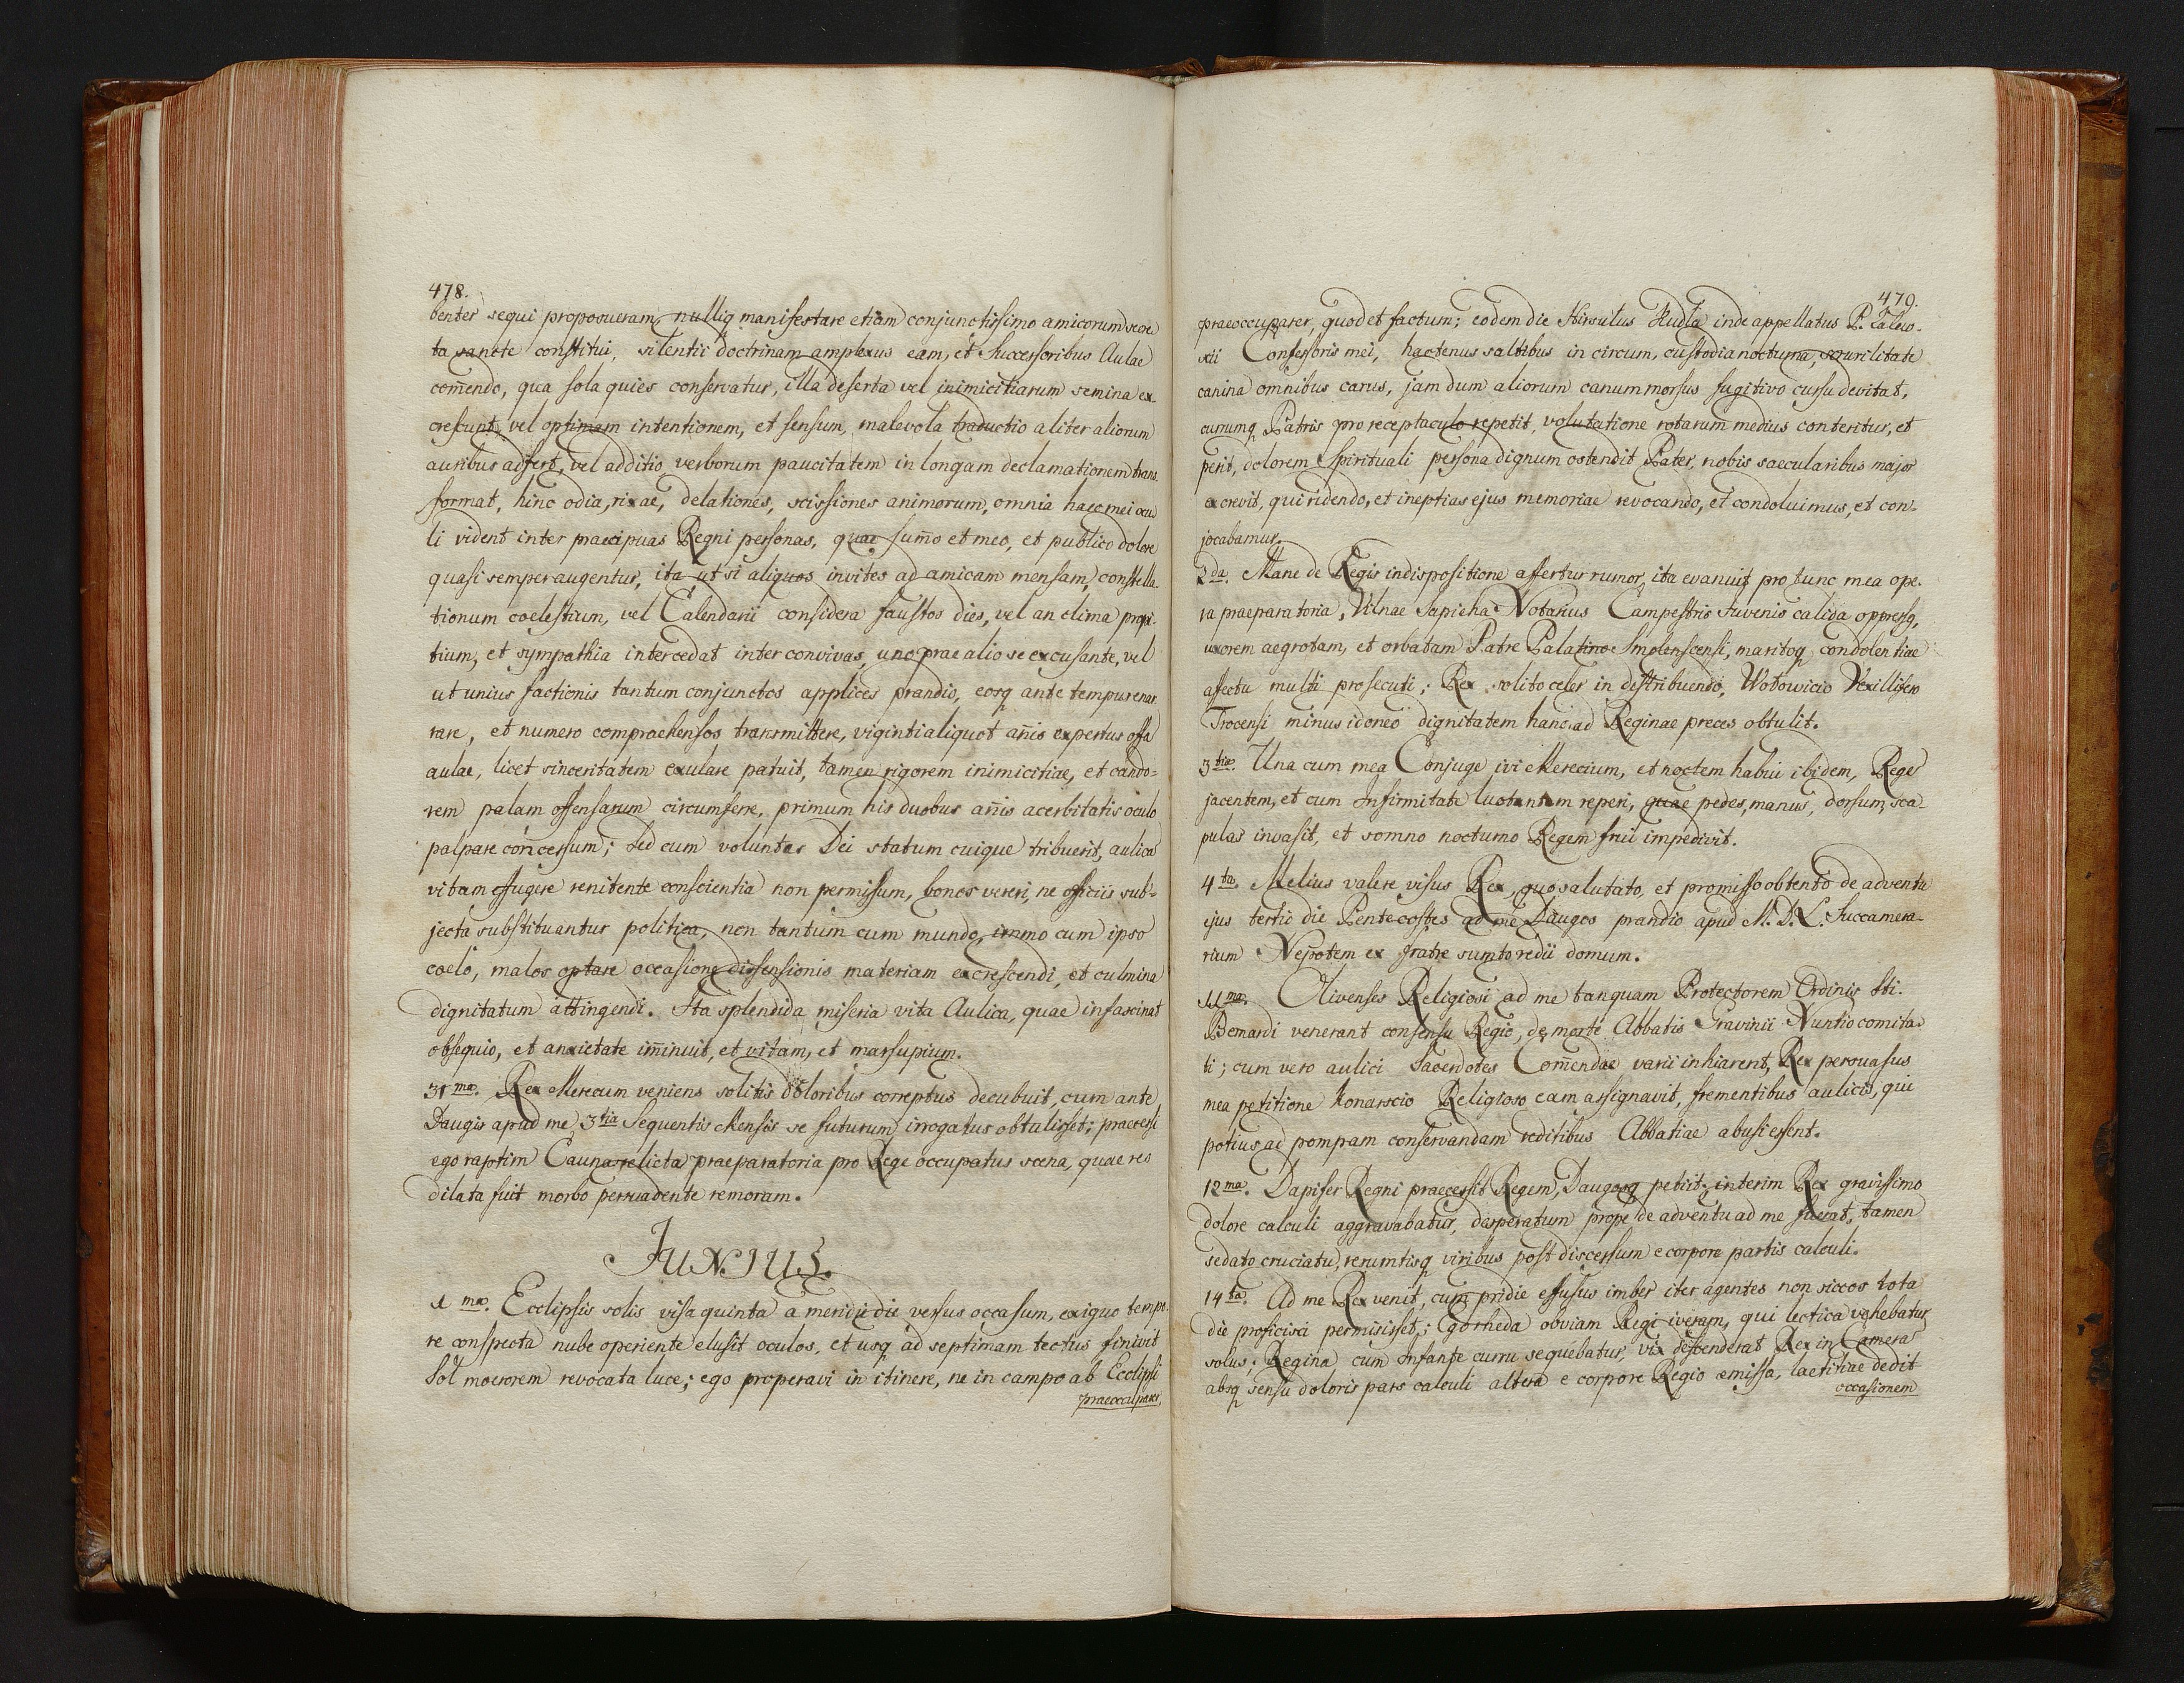 478.
benter sequi proposueram, nulliq manifestare etiam conjunctissimo amicorum secre
ta sancte constitui, silentii doctrinam amplexus eam, et Successoribus Aulae
com̄endo, qua sola quies conservatur, illa deserta vel inimicitiarum semina ex-
crescunt, vel optimam intentionem, et sensum, malevola traductio aliter alionum
auribus adfert, vel additio verborum paucitatem in longam declamationem trans-
format, hinc odia, rixae, delationes, scissiones animorum, omnia haec mei ocu
li vident inter praecipuas Regni personas, quae sum̄o et meo, et publico dolore
quasi semper augentur, ita ut si aliquos invites ad amicam mensam, constella-
tionum coelestium, vel Calendarii considera faustos dies, vel an clima propi-
tium, et sympathia intercedat inter convivas, uno prae alio se excusante, vel
ut unius factionis tantum conjunctos applices prandio, eosq ante tempus enar
rare, et numero comprachensos transmittere, viginti aliquot an̄is expertus offa
aulae, licet sinceritatem exulare patuit, tamen rigorem inimicitiae, et cando=
rem palam offensarum circumferre, primum his duobus an̄is acerbitatis oculo
palpare concessum; sed cum voluntas Dei statum cuique tribuerit, aulica
vitam effugere renitente conscientia non permissum, bonos vereri, ne officiis sub=
jecta substituantur politica, non tantum cum mundo, immo cum ipso
coelo, malos optare occasione dissensionis materiam excrescendi, et culmina
dignitatum attingendi. Ita splendida miseria vita Aulica, quae infascinat
obsequio, et anxietate im̄inuit, et vitam, et marsupium.
31ma. Rex Merecum veniens solitis doloribus correptus decubuit, cum ante
Daugis apud me 3tia Sequentis Mensis se futurum irrogatus obtulisset; praecessi
ego raptim Cauna relicta praeparatoria pro Rege occupatus scena, quae res
dilata fuit morbo persuadente remoram.
JUNIUS.
1ma. Ecclipsis solis visa quinta a meridie die versus occasum, exiguo tempo-
re conspecta nube operiente elusit oculos, et usq ad septimam tectus finivit
Sol moerorem revocata luce; ego properavi in itinere, ne in campo ab Ecclipsi
praeoccuparer,
479.
praeoccuparer, quod et factum; eodem die Hirsutus Kudla inde appellatus P. Calew-
xii Confessoris mei, hactenus saltibus in circum, custodia nocturna, scurilitate
canina omnibus carus, jam dum aliorum canum morsus fugitivo cursu devitat,
currumq Patris pro receptaculo repetit, volutatione rotarum medius conteritur, et
perit, dolorem Spirituali persona dignum ostendit Pater, nobis saecularibus major
excrevit, qui ridendo, et ineptias ejus memoriae revocando, et condoluimus, et con-
jocabamur.
2da. Mane de Regis indispositione affertur rumor, ita evanuit pro tunc mea ope-
ra praeparatoria, Vilnae Sapieha Notarius Campestris Juvenis calida oppressq,
uxorem aegrotam, et orbatam Patre Palatino Smolenscensi, maritoq condolentiae
affectu multi prosecuti; Rex solito celer in distribuendo, Wotowicio Vexillifero
Trocensi minus idoneo dignitatem hanc ad Reginae preces obtulit.
3tia. Una cum mea Conjuge ivi Merecium, et noctem habui ibidem, Rege
jacentem, et cum Infirmitate luctantem reperi, quae pedes, manus, dorsum, sca-
pulas invasit, et somno nocturno Regem frui impedivit.
4ta. Melius valere visus Rex, quo salutato, et promisso obtento de adventu
ejus tertio die Pentecostes ad me Daugos prandio apud M. D. L. Succamera-
rium Nepotem ex fratre sumto redii domum.
11ma. Olivenses Religiosi ad me tanquam Protectorem Ordinis Sti.
Bernardi venerant consensu Regio, de morte Abbatis Gravinii Nuntio comita-
ti; cum vero aulici Sacerdotes Com̄endae varii inhiarent, Rex persuasus
mea petitione Konarscio Religioso eam assignavit, frementibus aulicis, qui
potius ad pompam conservandam reditibus Abbatiae abusi essent.
12ma. Dapifer Regni praecessit Regem, Daugosq petiit; interim Rex gravissimo
dolore calculi aggravabatur, desperatum prope de adventu ad me fuerat, tamen
sedato cruciatu, resumtisq viribus post discessum e corpore partis calculi.
14ta. Ad me Rex venit, cum pridie effusus imber iter agentes non siccos tota
die proficisci permisisset; Ego rheda obviam Regi iveram, qui lectica vehebatur
solus. Regina cum Infante curru sequebatur, vix descenderat Rex in Camera
absq sensu doloris pars calculi altera e corpore Regio emissa, laetitiae dedit
occasionem